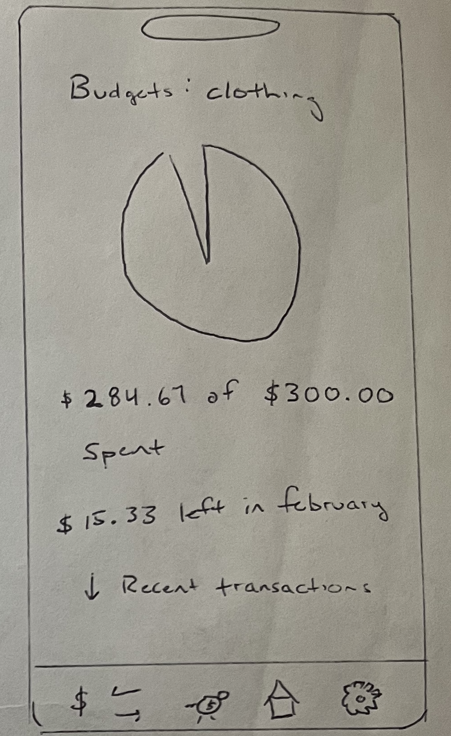 Budgets: clothing
$284.67 of $300.00
Spent
$15.33 left in february
↓ Recent transactions
$